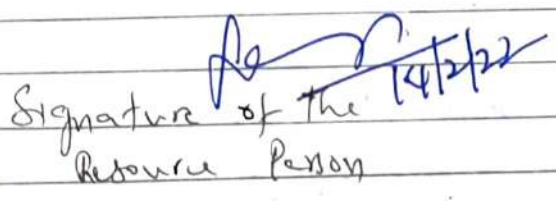 14/2/22
Signature of the
Resource Person